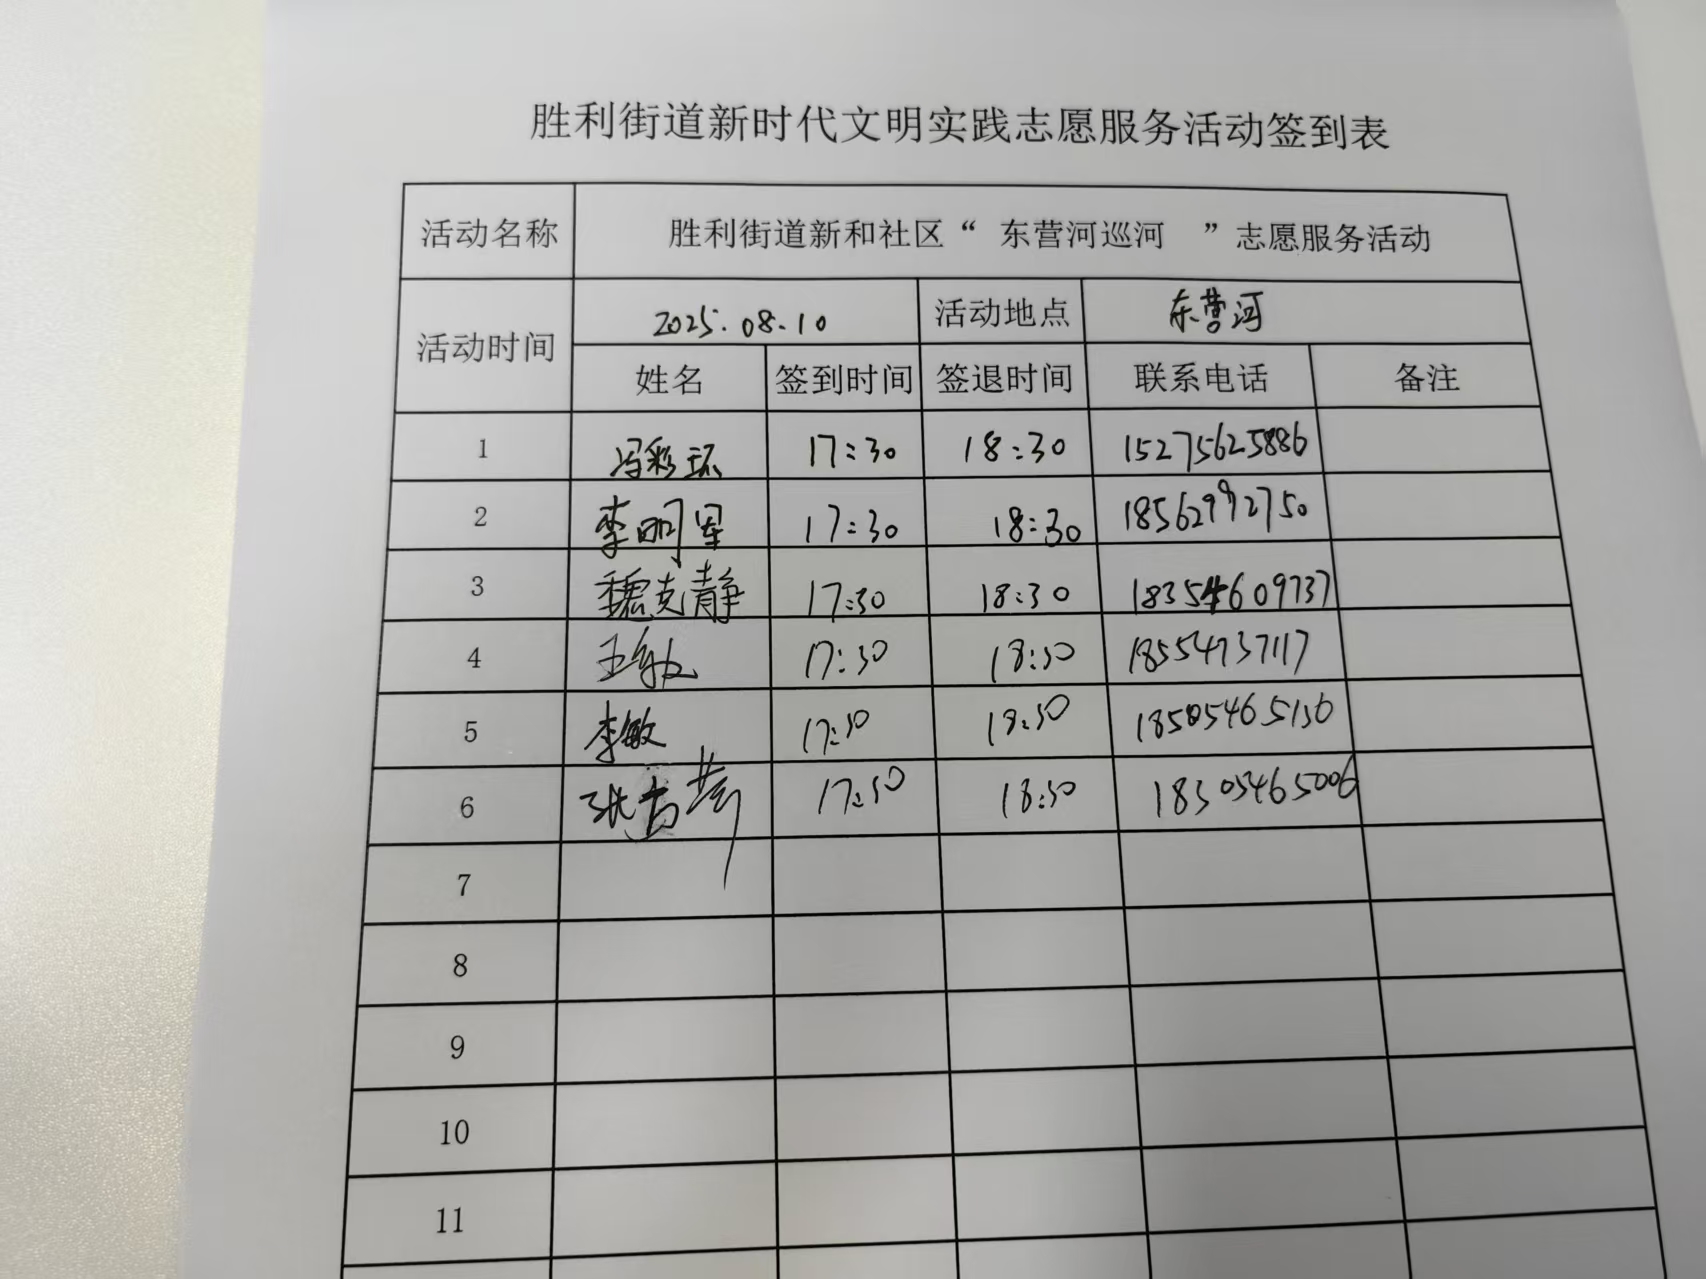 胜利街道新时代文明实践志愿服务活动签到表
活动名称 胜利街道新和社区“ 东营河巡河 ”志愿服务活动
活动时间 2025.08.10 活动地点 东营河
姓名 签到时间 签退时间 联系电话 备注
1 冯彩环 17:30 18:30 15275625886
2 李明军 17:30 18:30 18562992750
3 魏克静 17:30 18:30 18354609737
4 王敏 17:30 18:30 18554737117
5 李敏 17:30 18:30 18505465136
6 张 17:30 18:30 18305465006
7
8
9
10
11